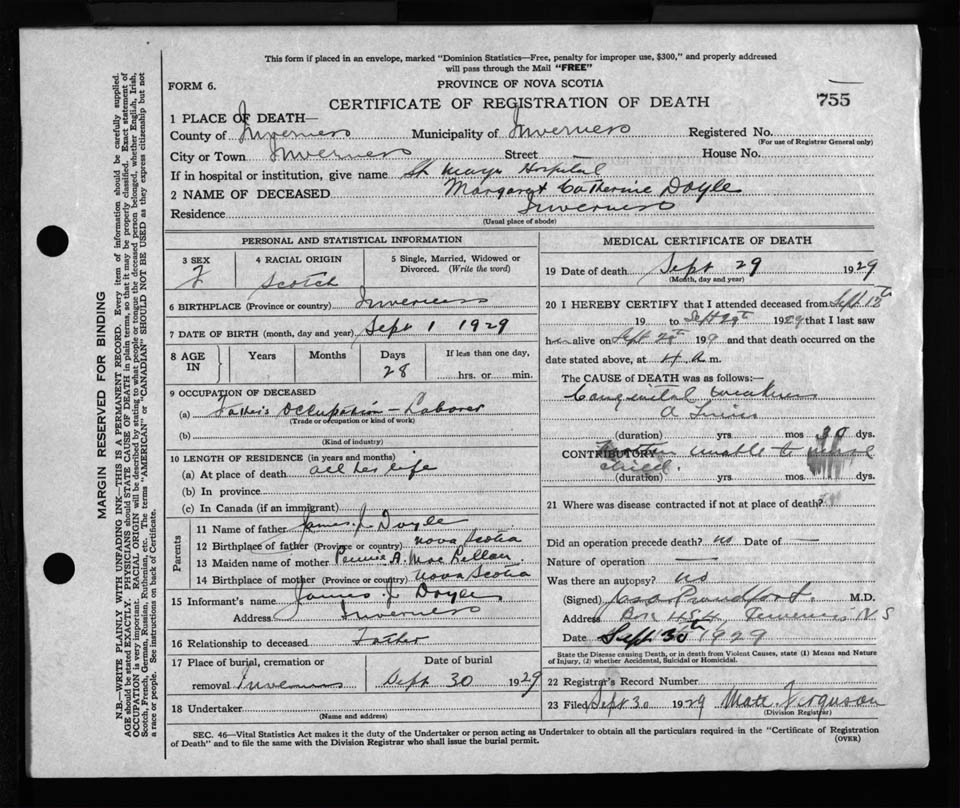 This form if placed in an envelope, marked "Dominion Statistics—Free, penalty for improper use, $300," and properly addressed
will pass through the Mail "FREE"
FORM 6.
PROVINCE OF NOVA SCOTIA
CERTIFICATE OF REGISTRATION OF DEATH
755
1 PLACE OF DEATH—
County of Inverness Municipality of Inverness Registered No.
(For use of Registrar General only)
City or Town Inverness Street House No.
If in hospital or institution, give name St Marys Hospital
2 NAME OF DECEASED Margaret Catherine Doyle
Residence Inverness
(Usual place of abode)
PERSONAL AND STATISTICAL INFORMATION
3 SEX
F
4 RACIAL ORIGIN
Scotch
5 Single, Married, Widowed or
Divorced. (Write the word)
6 BIRTHPLACE (Province or country) Inverness
7 DATE OF BIRTH (month, day and year) Sept 1 1929
8 AGE IN
Years Months Days If less than one day,
28 hrs. or min.
9 OCCUPATION OF DECEASED
(a) Father's Occupation — Laborer
(Trade or occupation or kind of work)
(b)
(Kind of industry)
10 LENGTH OF RESIDENCE (in years and months)
(a) At place of death all her life
(b) In province
(c) In Canada (if an immigrant)
Parents
11 Name of father James J Doyle
12 Birthplace of father (Province or country) Nova Scotia
13 Maiden name of mother A. MacLellan
14 Birthplace of mother (Province or country) Nova Scotia
15 Informant's name James J Doyle
Address Inverness
16 Relationship to deceased Father
17 Place of burial, cremation or Date of burial
removal Inverness Sept 30 1929
18 Undertaker
(Name and address)
MEDICAL CERTIFICATE OF DEATH
19 Date of death Sept 29 1929
(Month, day and year)
20 I HEREBY CERTIFY that I attended deceased from Sept
19 to Sept 29th 1929 that I last saw
h alive on Sept 19 and that death occurred on the
date stated above, at 4 A m.
The CAUSE of DEATH was as follows:—
Congenital weakness
a Twin
(duration) yrs mos 30 dys.
CONTRIBUTORY unable to
child.
(duration) yrs mos dys.
21 Where was disease contracted if not at place of death?
Did an operation precede death? no Date of —
Nature of operation —
Was there an autopsy? no
(Signed) Proudfoot M.D.
Address Box Inverness N S
Date Sept 30th 1929
State the Disease causing Death, or in death from Violent Causes, state (1) Means and Nature
of Injury, (2) whether Accidental, Suicidal or Homicidal.
22 Registrar's Record Number
23 Filed Sept 30 1929 Matt Ferguson
(Division Registrar)
SEC. 46—Vital Statistics Act makes it the duty of the Undertaker or person acting as Undertaker to obtain all the particulars required in the "Certificate of Registration
of Death" and to file the same with the Division Registrar who shall issue the burial permit.
(OVER)
MARGIN RESERVED FOR BINDING
N.B.—WRITE PLAINLY, WITH UNFADING INK—THIS IS A PERMANENT RECORD. Every item of information should be carefully supplied.
AGE should be stated EXACTLY. PHYSICIANS should STATE CAUSE OF DEATH in plain terms, so that it may be properly classified. Exact statement of
OCCUPATION is very important. RACIAL ORIGIN will be described by stating to what people or tongue the deceased person belonged, whether English, Irish,
Scotch, French, German, Russian, Ruthenian, etc. The terms "AMERICAN" or "CANADIAN" SHOULD NOT BE USED as they express citizenship but not
a race or people. See instructions on back of Certificate.